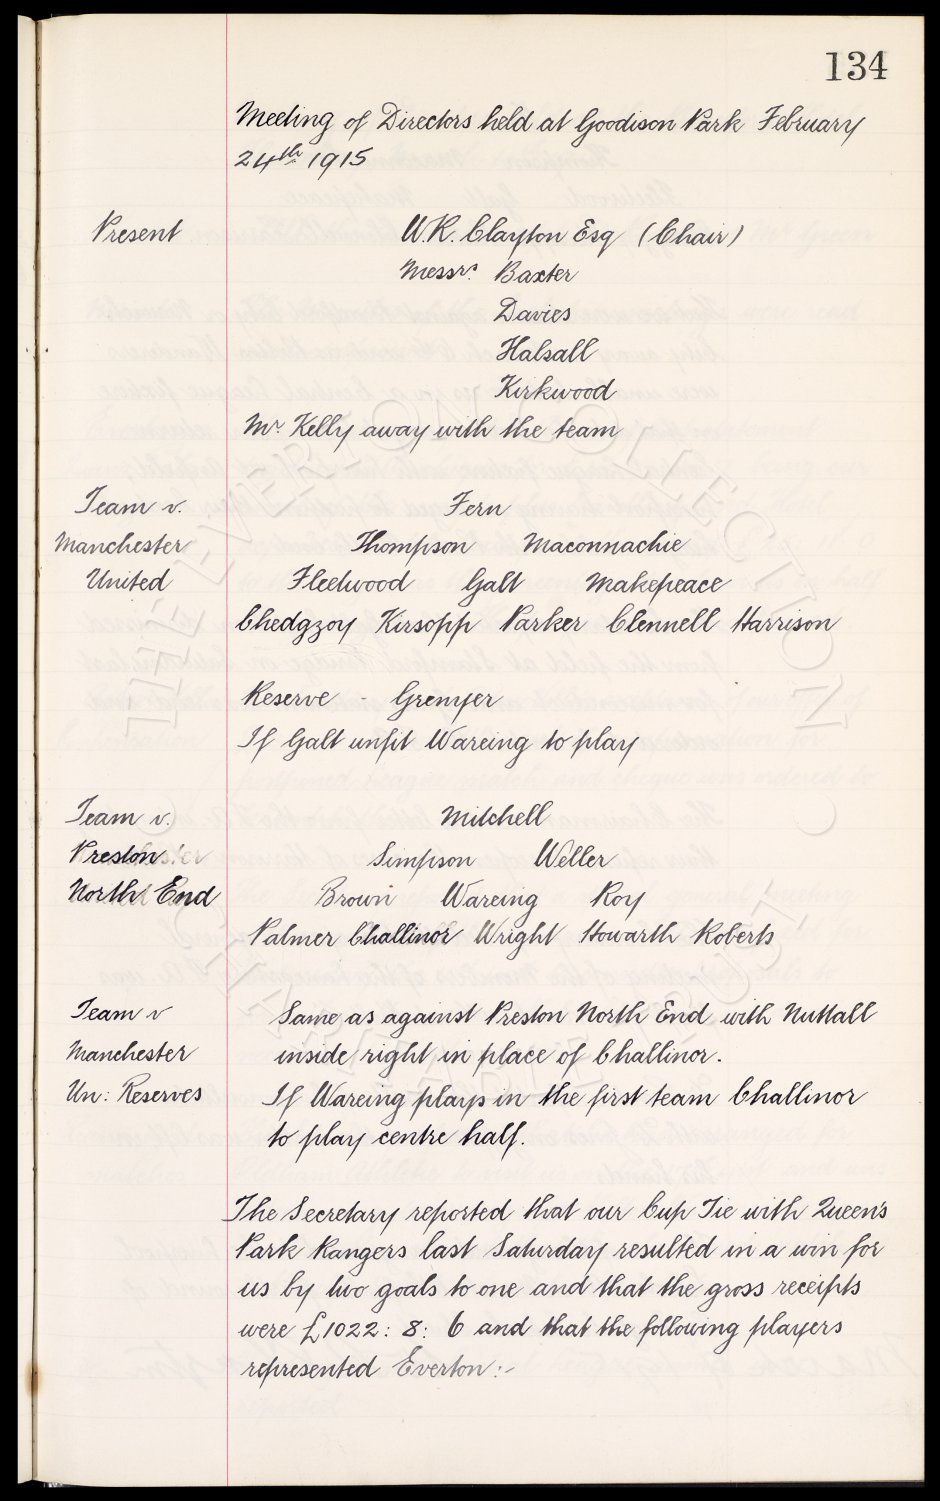 134
Meeting of Directors held at Goodison Park February
24th 1915
Present W.R. Clayton Esq (Chair)
Messrs. Baxter
Davies
Halsall
Kirkwood
Mr. Kelly away with the team
Team v. Fern
Manchester Thompson Maconnachie
United Fleetwood Galt Makepeace
Chedgzoy Kirsopp Parker Clennell Harrison
Reserve - Grenyer
If Galt unfit Wareing to play
Team v. Mitchell
Preston Simpson Weller
North End Brown Wareing Roy
Palmer Challinor Wright Howarth Roberts
Team v Same as against Preston North End with Nuttall
Manchester inside right in place of Challinor.
Un: Reserves If Wareing plays in the first team Challinor
to play centre half.
The Secretary reported that our Cup Tie with Queen's
Park Rangers last Saturday resulted in a win for
us by two goals to one and that the gross receipts
were £1022: 8: 6 and that the following players
represented Everton:-
THE EVERTON COLLECTION